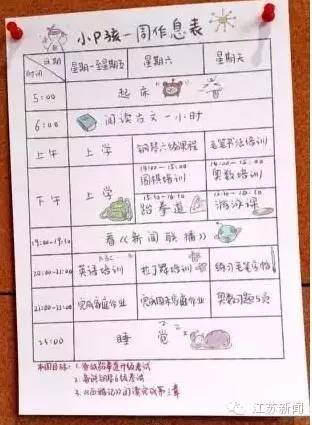 小P孩一周作息表
日期 时间 星期一至星期五 星期六 星期天
5:00 起床
6:00 阅读古文一小时
上午 上学 钢琴六级课程 毛笔书法培训
14:00-15:00 14:00-15:00
围棋培训 奥数培训
下午 上学
跆拳道 游泳课
19:00-19:30 看《新闻联播》
20:00-21:00 英语培训 拉丁舞培训 练习毛笔字帖
ABC
完成家庭作业 完成周末家庭作业 奥数习题5页
睡觉
本周目标: 1.备战跆拳道升级考试
2.备战钢琴6级考试
3.《西游记》阅读完成第三章
江苏新闻